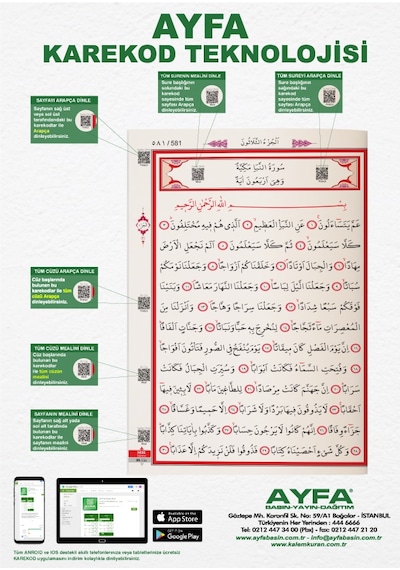 AYFA
KAREKOD TEKNOLOJİSİ
TÜM SURENİN MEALİNİ DİNLE
Sure başlığının
solundaki bu
karekod
sayesinde tüm
sayfası mealini
dinleyebilirsiniz.
TÜM SUREYİ ARAPÇA DİNLE
Sure başlığının
sağındaki bu
karekod
sayesinde tüm
sayfası Arapça
dinleyebilirsiniz.
SAYFAYI ARAPÇA DİNLE
Sayfanın sağ üst
veya sol üst
tarafındandaki bu
karekodlar ile
Arapça
dinleyebilirsiniz.
٥٨١ / 581
اَلْجُزْءُ الثَّلَاثُونَ
سُورَةُ النَّبَأِ مَكِّيَّةٌ
وَهِيَ اَرْبَعُونَ اٰيَةً
بِسْمِ اللّٰهِ الرَّحْمٰنِ الرَّحِيمِ
عَمَّ يَتَسَٓاءَلُونَ عَنِ النَّبَأِ الْعَظِيمِ اَلَّذِي هُمْ فِيهِ مُخْتَلِفُونَ
كَلَّا سَيَعْلَمُونَ ثُمَّ كَلَّا سَيَعْلَمُونَ اَلَمْ نَجْعَلِ الْاَرْضَ
مِهَادًا وَالْجِبَالَ اَوْتَادًا وَخَلَقْنَاكُمْ اَزْوَاجًا وَجَعَلْنَا نَوْمَكُمْ
سُبَاتًا وَجَعَلْنَا الَّيْلَ لِبَاسًا وَجَعَلْنَا النَّهَارَ مَعَاشًا وَبَنَيْنَا
فَوْقَكُمْ سَبْعًا شِدَادًا وَجَعَلْنَا سِرَاجًا وَهَّاجًا وَاَنْزَلْنَا مِنَ
الْمُعْصِرَاتِ مَٓاءً ثَجَّاجًا لِنُخْرِجَ بِهِ حَبًّا وَنَبَاتًا وَجَنَّاتٍ اَلْفَافًا
اِنَّ يَوْمَ الْفَصْلِ كَانَ مِيقَاتًا يَوْمَ يُنْفَخُ فِي الصُّورِ فَتَأْتُونَ اَفْوَاجًا
وَفُتِحَتِ السَّمَٓاءُ فَكَانَتْ اَبْوَابًا وَسُيِّرَتِ الْجِبَالُ فَكَانَتْ
سَرَابًا اِنَّ جَهَنَّمَ كَانَتْ مِرْصَادًا لِلطَّاغِينَ مَاٰبًا لَابِثِينَ فِيهَٓا
اَحْقَابًا لَا يَذُوقُونَ فِيهَا بَرْدًا وَلَا شَرَابًا اِلَّا حَمِيمًا وَغَسَّاقًا
جَزَٓاءً وِفَاقًا اِنَّهُمْ كَانُوا لَا يَرْجُونَ حِسَابًا وَكَذَّبُوا بِاٰيَاتِنَا كِذَّابًا
وَكُلَّ شَيْءٍ اَحْصَيْنَاهُ كِتَابًا فَذُوقُوا فَلَنْ نَزِيدَكُمْ اِلَّا عَذَابًا
TÜM CÜZÜ ARAPÇA DİNLE
Cüz başlarında
bulunan bu
karekodlar ile tüm
cüzü Arapça
dinleyebilirsiniz.
TÜM CÜZÜ MEALİNİ DİNLE
Cüz başlarında
bulunan bu
karekodlar
ile tüm cüzün
mealini
dinleyebilirsiniz.
SAYFANIN MEALİNİ DİNLE
Sayfanın sağ alt yada
sol alt tarafında
bulunan bu
karekodlar ile
sayfanın mealini
dinleyebilirsiniz.
Available on the
App Store
Google Play
Tüm ANROID ve IOS destekli akıllı telefonlarınıza veya tabletlerinize ücretsiz
KAREKOD uygulamasını indirim kolaylıkla dinleyebilirsiniz.
AYFA®
BASIN-YAYIN-DAĞITIM
Göztepe Mh. Karanfil Sk. No: 59/A1 Bağcılar - İSTANBUL
Türkiyenin Her Yerinden : 444 6666
Tel: 0212 447 34 00 (Pbx) - fax: 0212 447 21 20
www.ayfabasin.com.tr - info@ayfabasin.com.tr
www.kalemkuran.com.tr